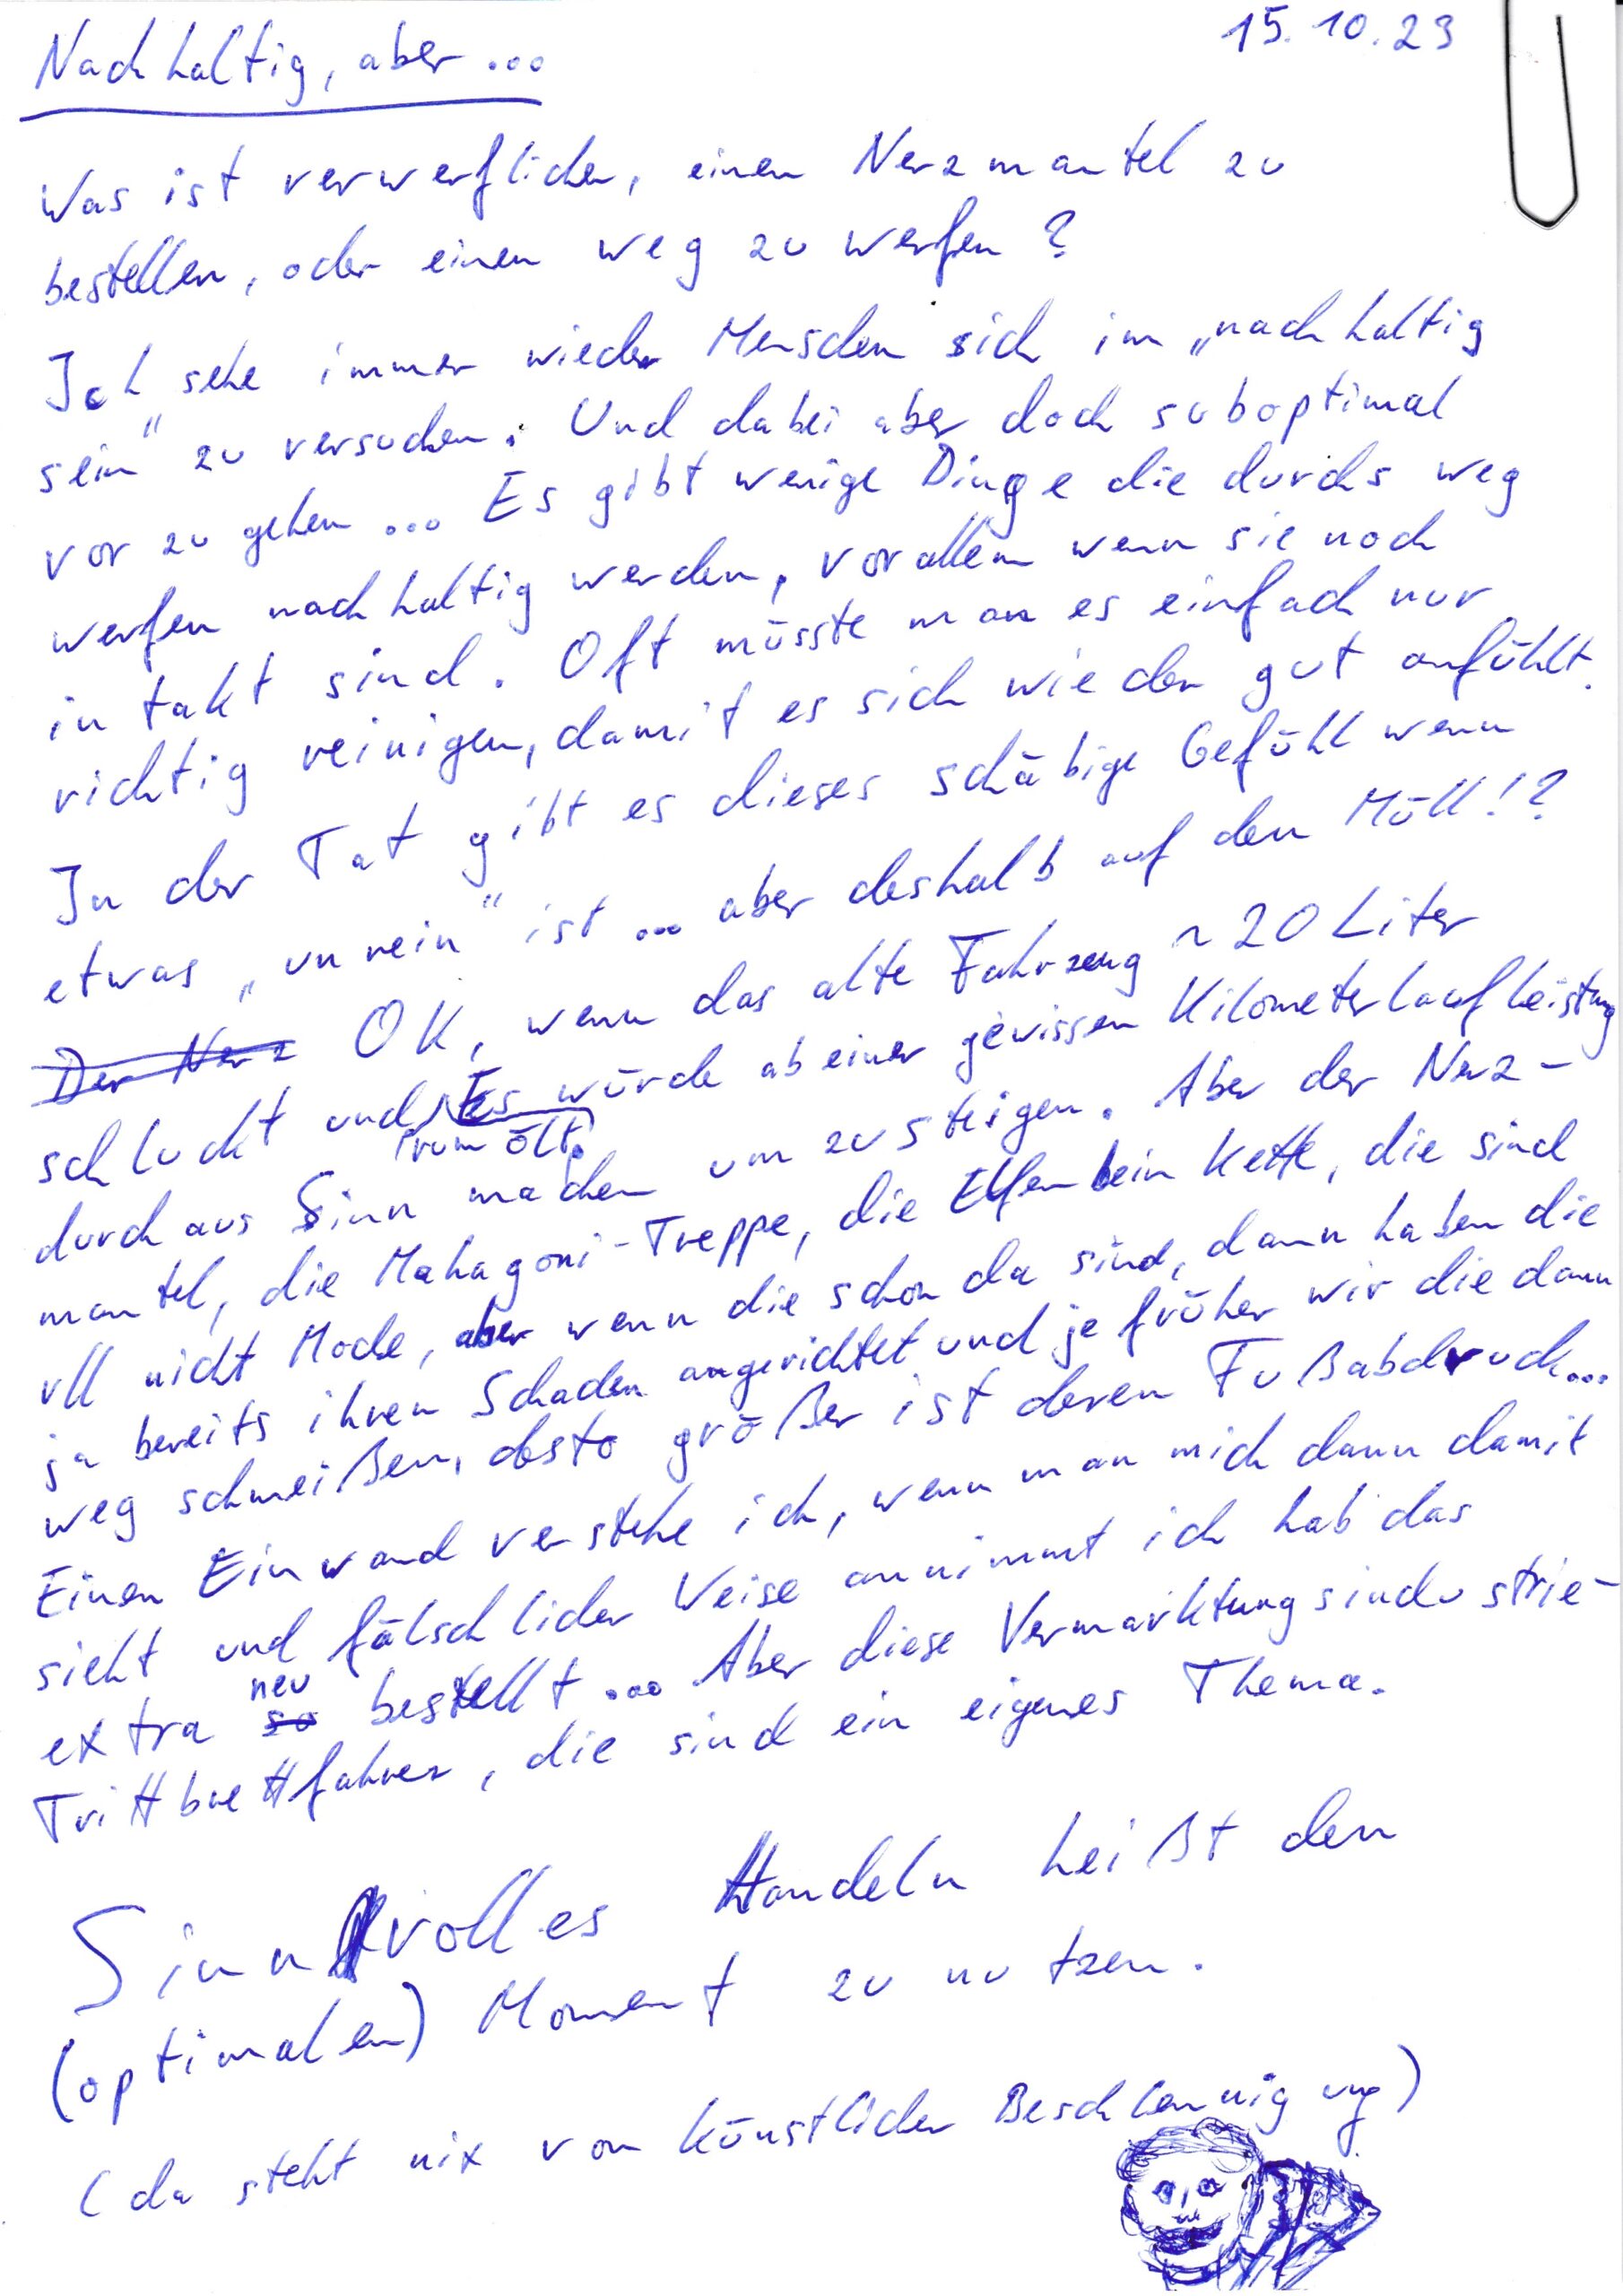 15.10.23
Nachhaltig, aber...
Was ist verwerflicher, einen Nerzmantel zu
bestellen, oder einen weg zu werfen?
Ich sehe immer wieder Menschen sich im „nachhaltig
sein" zu versuchen. Und dabei aber doch suboptimal
vor zu gehen ... Es gibt wenige Dinge die durchs weg
werfen nachhaltig werden, vorallem wenn sie noch
intakt sind. Oft müsste man es einfach nur
richtig reinigen, damit es sich wieder gut anfühlt.
In der Tat gibt es dieses schäbige Gefühl wenn
etwas „unrein" ist ... aber deshalb auf den Müll!?
Der Nerz OK, wenn das alte Fahrzeug ~ 20 Liter
schluckt und Es würde ab einer gewissen Kilometerlaufleistung
rum ölt.
durchaus Sinn machen um zu steigen. Aber der Nerz-
mantel, die Mahagoni-Treppe, die Elfenbein Kette, die sind
vll nicht Mode, aber wenn die schon da sind, dann haben die
ja bereits ihren Schaden angerichtet und je früher wir die dann
weg schmeißen, desto größer ist deren Fußabdruck...
Einen Einwand verstehe ich, wenn man mich dann damit
sieht und fälschlicher Weise annimmt ich hab das
neu
extra so bestellt ... Aber diese Vermarktungsindustrie-
Trittbrettfahrer, die sind ein eigenes Thema.
Sinnvolles Handeln heißt den
(optimalen) Moment zu nutzen.
(da steht nix von künstlicher Beschleunigung)